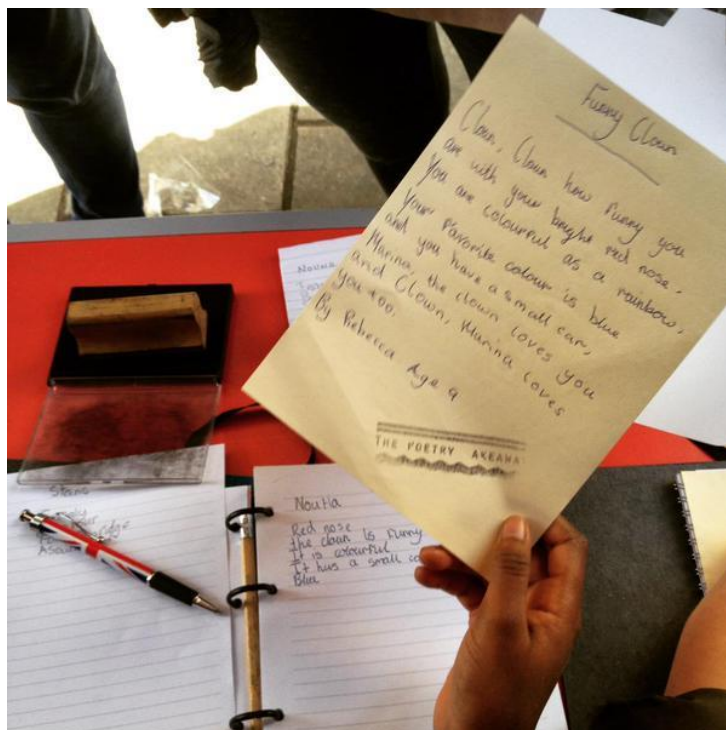 Funny Clown
Clown, Clown how funny you
are with your bright red nose,
You are colourful as a rainbow,
Your favorite colour is blue
and you have a small car,
Marina, the clown loves you
and Clown, Marina loves
you too.
By Rebecca Age 9
THE POETRY
Stans
Noutia
Red nose
the clown is funny
It is colourful
It has a small
Blue